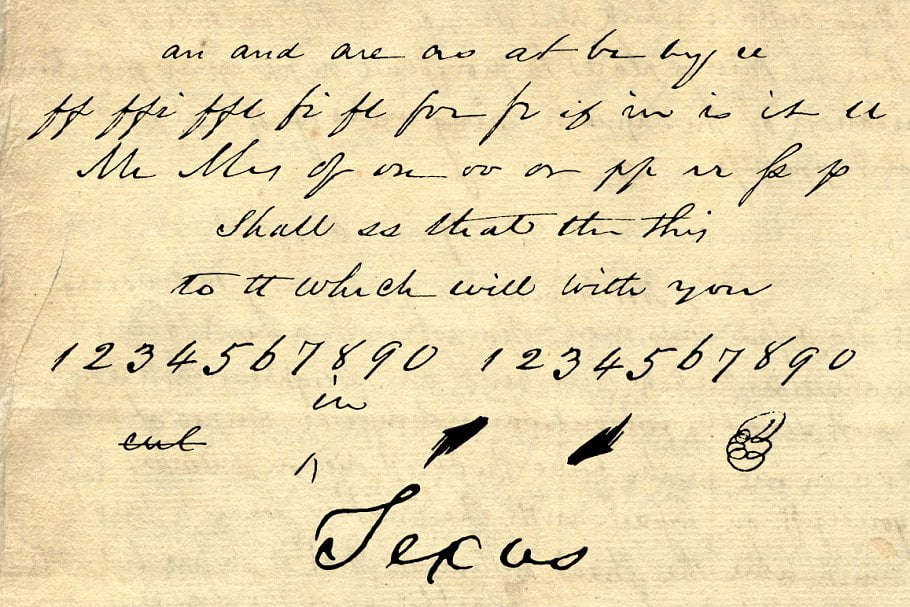 an and are as at be by ee
ff ffi ffl fi fl for fr if in is it ll
Mr Mrs of on oo or pp rr
Shall ss that the this
to tt which will with you
1234567890 1234567890
in
cut
Texas